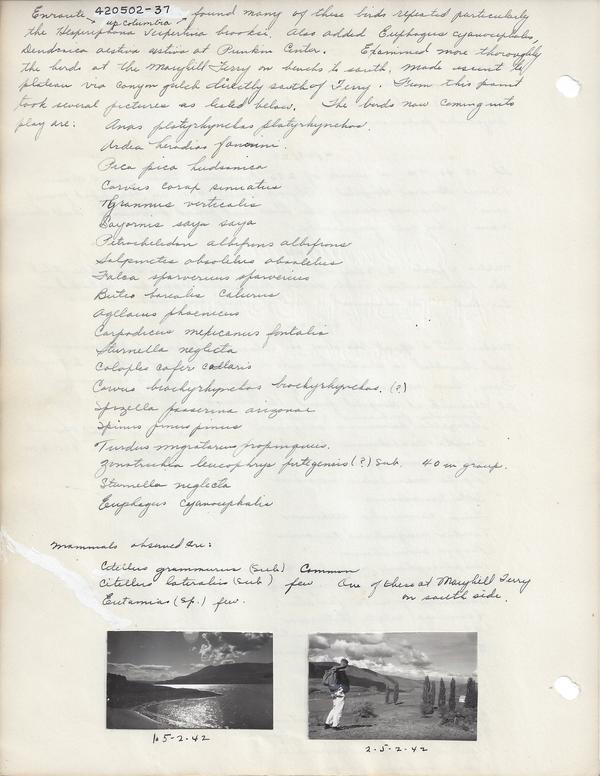 420502-37
Enroute up Columbia found many of these birds repeated particularly
the Hesperiphona vespertina brooksi. Also added Euphagus cyanocephalus,
Dendroica aestiva aestiva at Punkin Center. Examined more thoroughly
the birds at the Maryhill Ferry on benchs to south. Made ascent to
plateau via canyon gulch directly south of Ferry. From this point
took several pictures as listed below. The birds now coming into
play are: Anas platyrhynchos platyrhynchos.
Ardea herodias
Pica pica hudsonica
Corvus corax sinuatus
Tyrannus verticalis
Sayornis saya saya
Petrochelidon albifrons albifrons
Salpinctes obsoletus obsoletus
Falco sparverius sparverius
Buteo borealis calurus
Agelaius phoenicus
Carpodicus mexicanus fontalis
Sturnella neglecta
Coloptes cafer collaris
Corvus brachyrhynchos brachyrhynchos. (?)
Spizella passerina arizonae
Spinus pinus pinus
Turdus migratorius propinquus.
Zonotrichia leucophrys (?) Sub. 40 in group.
Sturnella neglecta
Euphagus cyanocephalis
Mammals observed are:
Citellus grammurus (sub) Common
Citellus lateralis (sub) few One of these at Maryhill Ferry
on south side.
Eutamias (sp.) few.
1. 5-2-42
2-5-2-42